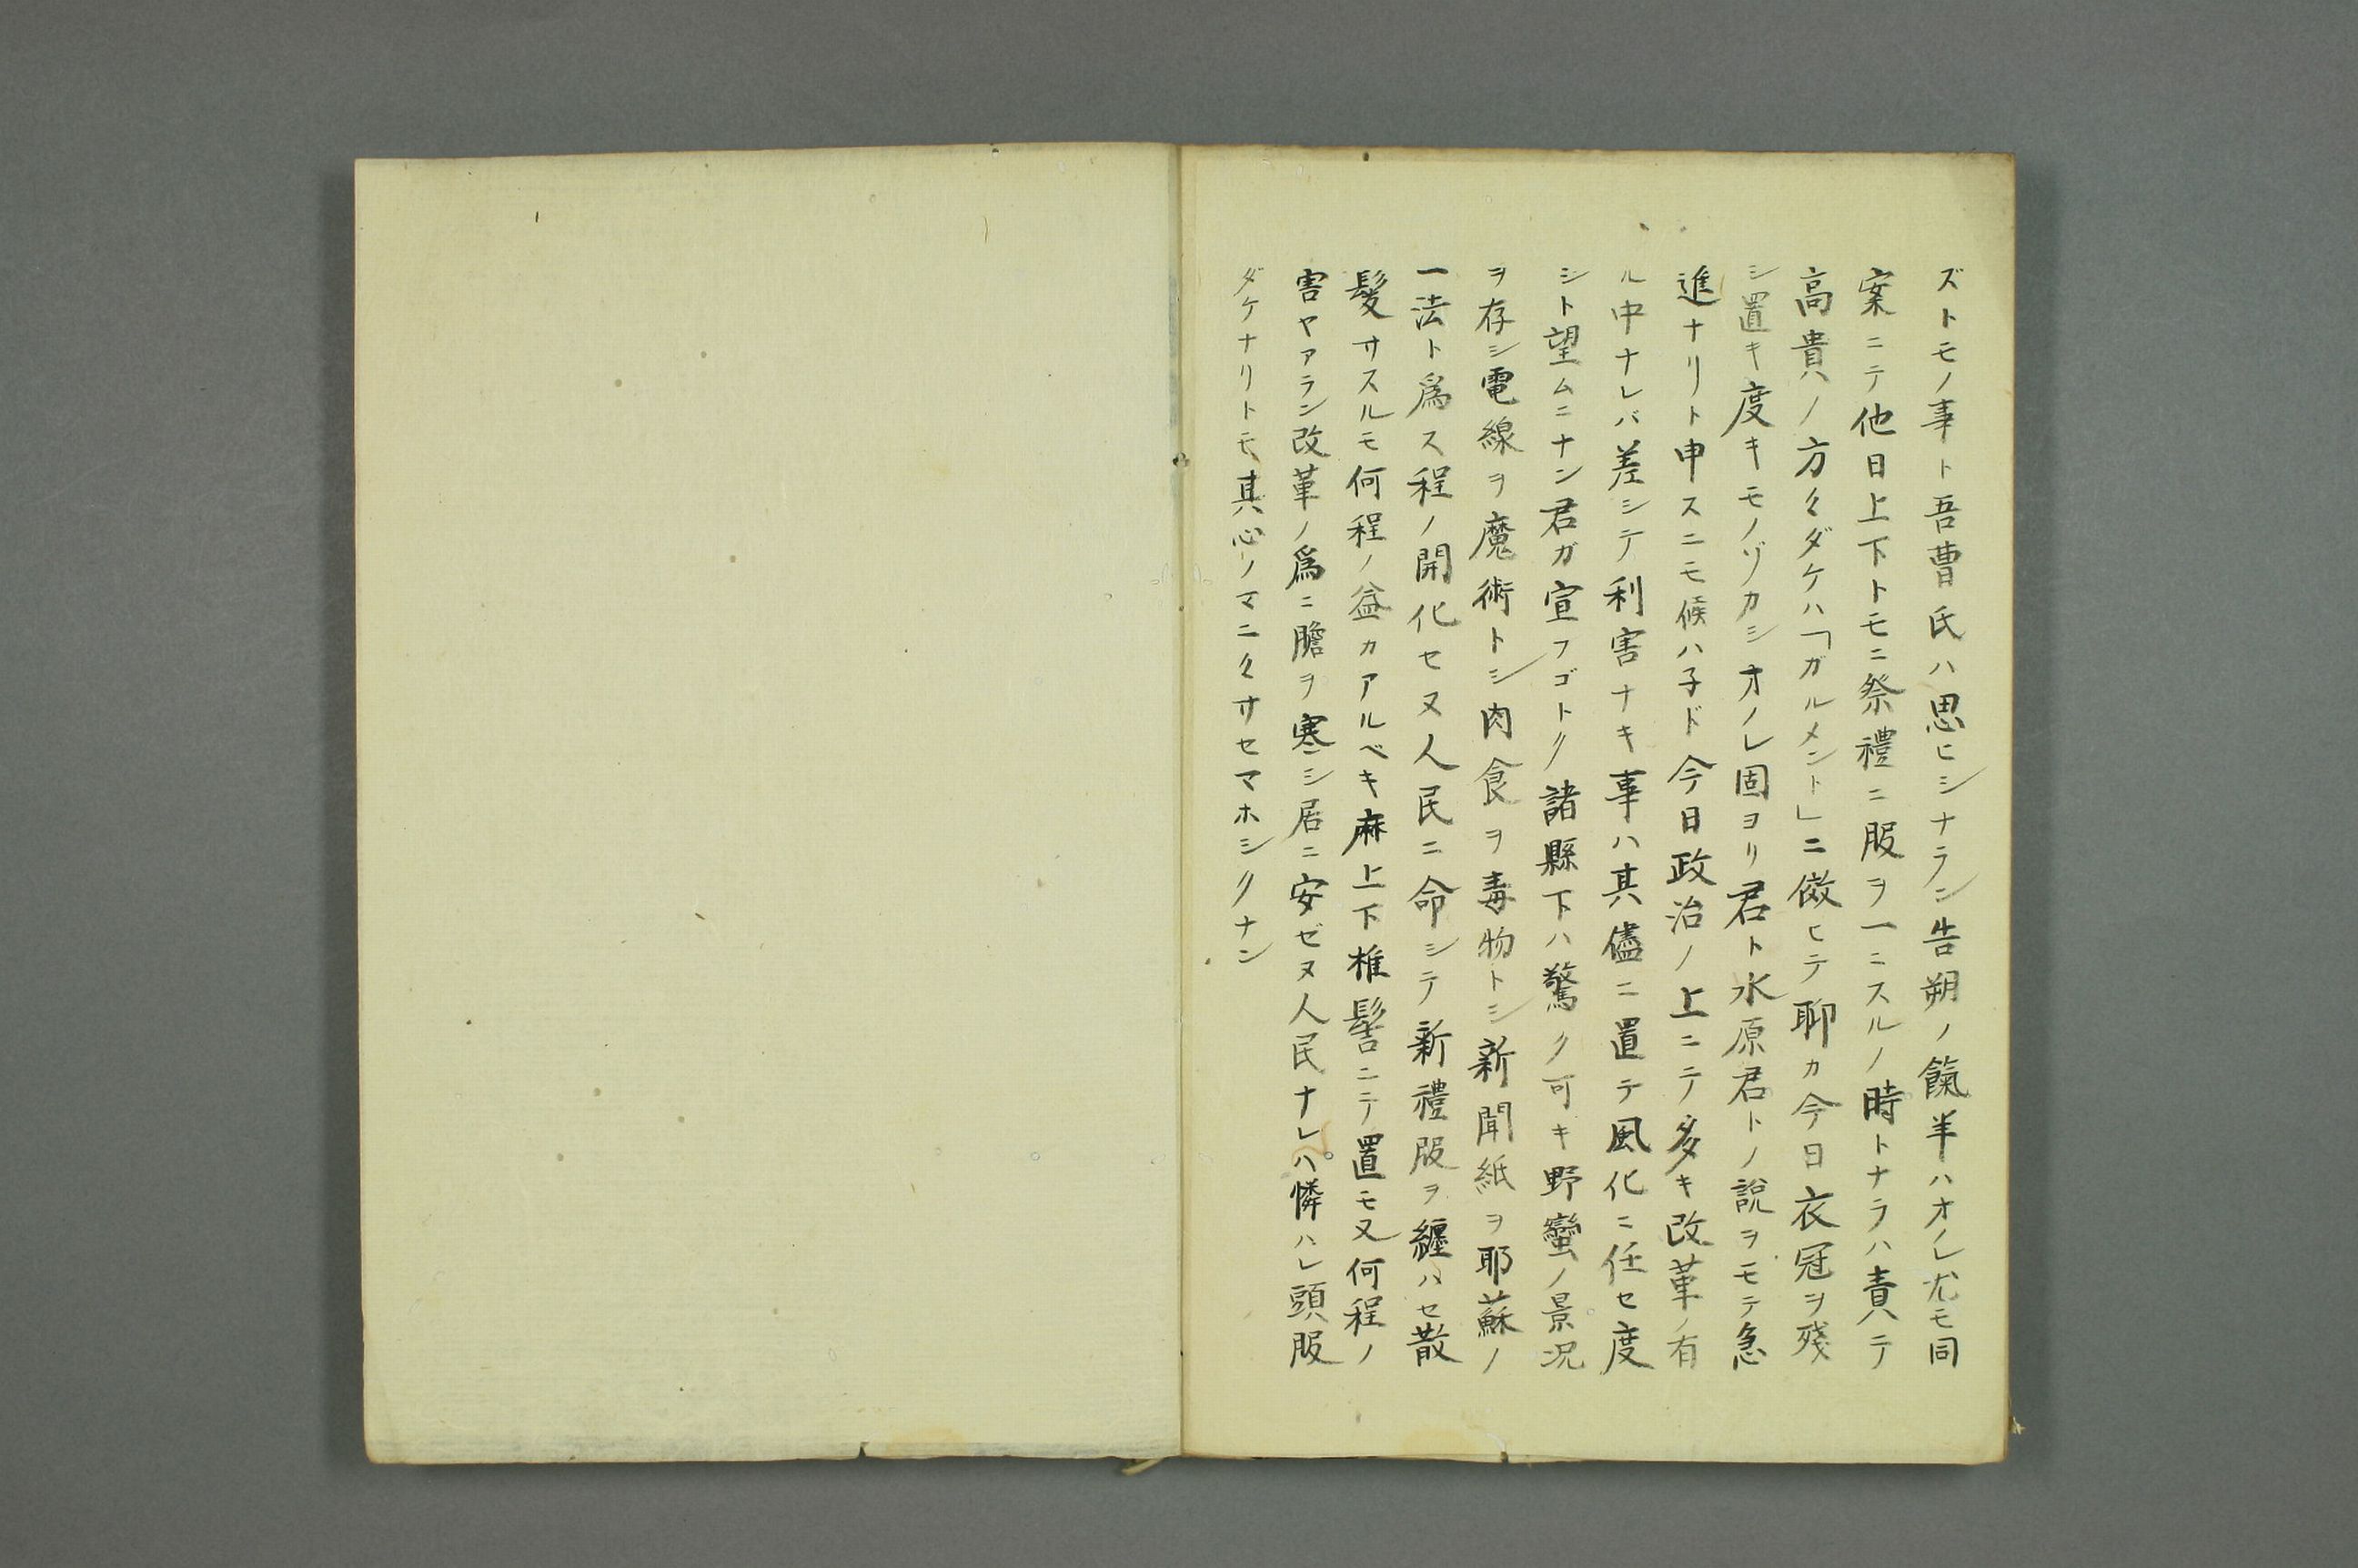 ズトモノ事ト吾曹氏ハ思ヒシナラン告朔ノ餼羊ハオノレ尤モ同
案ニテ他日上下トモニ祭禮ニ服ヲ一ニスルノ時トナラハ責テ
高貴ノ方々ダケハ「ガルメント」ニ倣ヒテ聊カ今日衣冠ヲ殘
シ置キ度キモノゾカシオノレ固ヨリ君ト水原君トノ説ヲモテ急
進ナリト申スニモ候ハ子ド今日政治ノ上ニテ多キ改革ノ有
ル中ナレバ差シテ利害ナキ事ハ其儘ニ置テ風化ニ任セ度
シト望ムニナン君ガ宣フゴトク諸縣下ハ驚ク可キ野蠻ノ景況
ヲ存シ電線ヲ魔術トシ肉食ヲ毒物トシ新聞紙ヲ耶蘇ノ
一法ト爲ス程ノ開化セヌ人民ニ命シテ新禮服ヲ纒ハセ散
髮サスルモ何程ノ益カアルベキ麻上下椎髻ニテ置モ又何程ノ
害ヤアラン改革ノ爲ニ膽ヲ寒シ居ニ安ゼヌ人民ナレハ憐ハレ頭服
ダケナリトモ其心ノマニ々サセマホシクナン